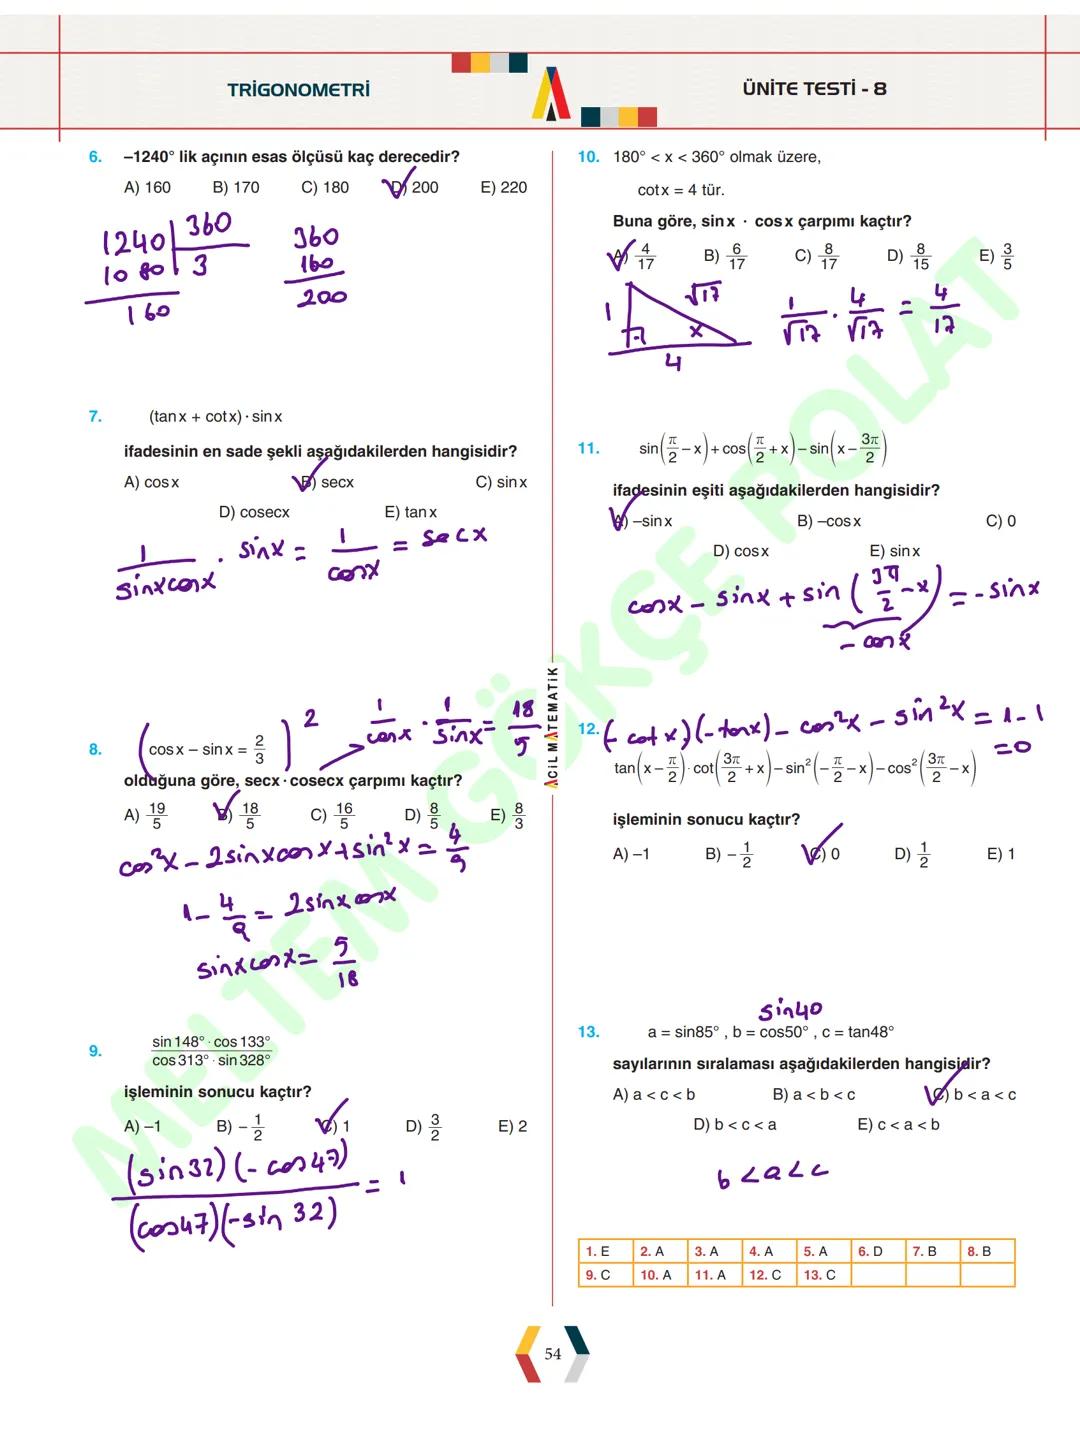 TRİGONOMETRİ
ÜNİTE TESTİ - 8
6. –1240° lik açının esas ölçüsü kaç derecedir?
A) 160 B) 170 C) 180 D) 200 E) 220
1240 | 360
1080 3
160
360
160
200
7. (tan x + cot x) · sin x
ifadesinin en sade şekli aşağıdakilerden hangisidir?
A) cos x B) secx C) sin x
D) cosecx E) tan x
1/(sinxcosx) · sinx = 1/cosx = secx
8. (cos x – sin x = 2/3)²
1/cosx · 1/sinx = 18/5
olduğuna göre, secx · cosecx çarpımı kaçtır?
A) 19/5 B) 18/5 C) 16/5 D) 8/5 E) 8/3
cos²x – 2sinxcosx + sin²x = 4/9
1 – 4/9 = 2sinxcosx
sinxcosx = 5/18
9. (sin 148° · cos 133°)/(cos 313° · sin 328°)
işleminin sonucu kaçtır?
A) –1 B) –1/2 C) 1 D) 3/2 E) 2
(sin32)(–cos47)/(cos47)(–sin 32) = 1
ACİL MATEMATİK
10. 180° < x < 360° olmak üzere,
cot x = 4 tür.
Buna göre, sin x · cos x çarpımı kaçtır?
A) 4/17 B) 6/17 C) 8/17 D) 8/15 E) 3/5
1 √17 x 4
1/√17 · 4/√17 = 4/17
11. sin(π/2 – x) + cos(π/2 + x) – sin(x – 3π/2)
ifadesinin eşiti aşağıdakilerden hangisidir?
A) –sin x B) –cos x C) 0
D) cos x E) sin x
cosx – sinx + sin(3π/2 – x) = –sinx
– cosx
12. (–cotx)(–tanx) – cos²x – sin²x = 1–1
=0
tan(x – π/2) · cot(3π/2 + x) – sin²(–π/2 – x) – cos²(3π/2 – x)
işleminin sonucu kaçtır?
A) –1 B) –1/2 C) 0 D) 1/2 E) 1
sin40
13. a = sin85° , b = cos50° , c = tan48°
sayılarının sıralaması aşağıdakilerden hangisidir?
A) a < c < b B) a < b < c C) b < a < c
D) b < c < a E) c < a < b
b < a < c
1. E 2. A 3. A 4. A 5. A 6. D 7. B 8. B
9. C 10. A 11. A 12. C 13. C
54
MELTEM GÖKÇE POLAT